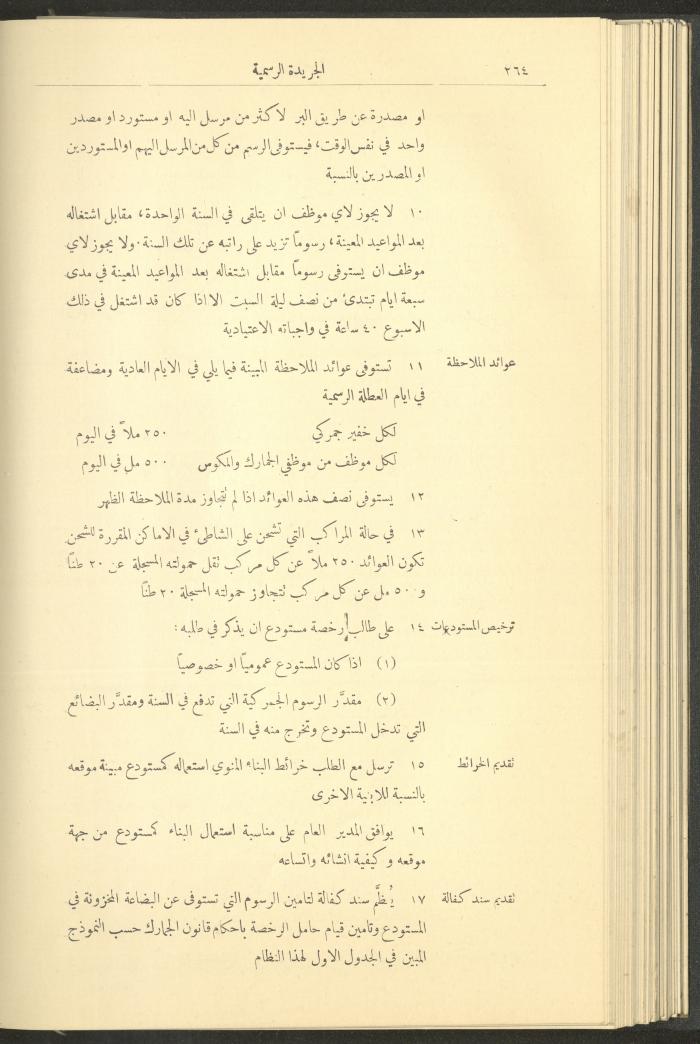 ٢٦٤
الجريدة الرسمية
او مصدرة عن طريق البر لاكثر من مرسل اليه او مستورد او مصدر
واحد في نفس الوقت، فيستوفى الرسم من كل من المرسل اليهم او المستوردين
او المصدرين بالنسبة
١٠ لا يجوز لاي موظف ان يتلقى في السنة الواحدة، مقابل اشتغاله
بعد المواعيد المعينة، رسوماً تزيد على راتبه عن تلك السنة. ولا يجوز لاي
موظف ان يستوفى رسوماً مقابل اشتغاله بعد المواعيد المعينة في مدى
سبعة ايام تبتدئ من نصف ليلة السبت الا اذا كان قد اشتغل في ذلك
الاسبوع ٤٠ ساعة في واجباته الاعتيادية
عوائد الملاحظة
١١ تستوفى عوائد الملاحظة المبينة فيما يلي في الايام العادية ومضاعفة
في ايام العطلة الرسمية
لكل خفير جمركي ٢٥٠ ملاً في اليوم
لكل موظف من موظفي الجمارك والمكوس ٥٠٠ مل في اليوم
١٢ يستوفى نصف هذه العوائد اذا لم تتجاوز مدة الملاحظة الظهر
١٣ في حالة المراكب التي تشحن على الشاطئ في الاماكن المقررة للشحن
تكون العوائد ٢٥٠ ملاً عن كل مركب تقل حمولته المسجلة عن ٢٠ طنًا
و ٥٠٠ مل عن كل مركب تتجاوز حمولته المسجلة ٢٠ طنًا
ترخيص المستودعات
١٤ على طالب رخصة مستودع ان يذكر في طلبه:
(١) اذا كان المستودع عمومياً او خصوصياً
(٢) مقدَّر الرسوم الجمركية التي تدفع في السنة ومقدَّر البضائع
التي تدخل المستودع وتخرج منه في السنة
تقديم الخرائط
١٥ ترسل مع الطلب خرائط البناء المنوي استعماله كمستودع مبينة موقعه
بالنسبة للابنية الاخرى
١٦ يوافق المدير العام على مناسبة استعمال البناء كمستودع من جهة
موقعه وكيفية انشائه واتساعه
تقديم سند كفالة
١٧ يُنظَّم سند كفالة لتامين الرسوم التي تستوفى عن البضاعة المخزونة في
المستودع وتامين قيام حامل الرخصة باحكام قانون الجمارك حسب النموذج
المبين في الجدول الاول لهذا النظام